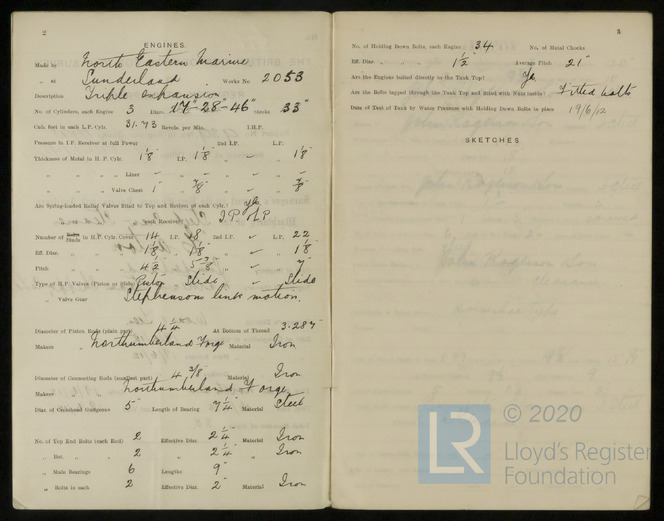 2
ENGINES.
Made by North Eastern Marine
„ at Sunderland Works No. 2053
Description Triple Expansion
No. of Cylinders, each Engine 3 Diars. 17"-28"-46" Stroke 33"
Cub. feet in each L.P. Cylr. 31.73 Revols. per Min. I.H.P.
Pressure in I.P. Receiver at full Power 2nd I.P. L.P.
Thickness of Metal in H.P. Cylr. 1 1/8" I.P. 1 1/8" „ – „ 1 1/8"
„ „ Liner – „ „ – „
„ „ Valve Chest 1" „ 7/8" „ – „ 7/8"
Are Spring-loaded Relief Valves fitted to Top and Bottom of each Cylr.? Yes
„ „ each Receiver? I.P. & L.P.
Number of Bolts Studs in H.P. Cylr. Cover 14 I.P. 18 2nd I.P. – L.P. 22
Eff. Diar. „ 1 1/8" „ 1 1/8" „ – „ 1 1/8"
Pitch „ 4 1/2 „ 5 3/8" „ – „ 7"
Type of H.P. Valves (Piston or Slide) Piston „ Slide „ – „ Slide
Valve Gear Stephensons link motion
Diameter of Piston Rods (plain part) 4 1/4" At Bottom of Thread 3.287"
Makers Northumberland Forge Material Iron
Diameter of Connecting Rods (smallest part) 4 3/8" Material Iron
Makers Northumberland Forge
Diar. of Crosshead Gudgeons 5" Length of Bearing 7 1/4" Material Steel
No. of Top End Bolts (each Rod) 2 Effective Diar. 2 1/4" Material Iron
„ Bot. „ „ 2 „ 2 1/4" „ Iron
„ Main Bearings 6 Lengths 9"
„ Bolts in each 2 Effective Diar. 2" Material Iron
3
No. of Holding Down Bolts, each Engine 34 No. of Metal Chocks
Eff. Diar. „ „ 1 1/2" Average Pitch 21"
Are the Engines bolted directly to the Tank Top? Yes
Are the Bolts tapped through the Tank Top and fitted with Nuts inside? Fitted bolts
Date of Test of Tank by Water Pressure with Holding Down Bolts in place 19/6/12
SKETCHES
© 2020
LR
Lloyd's Register
Foundation